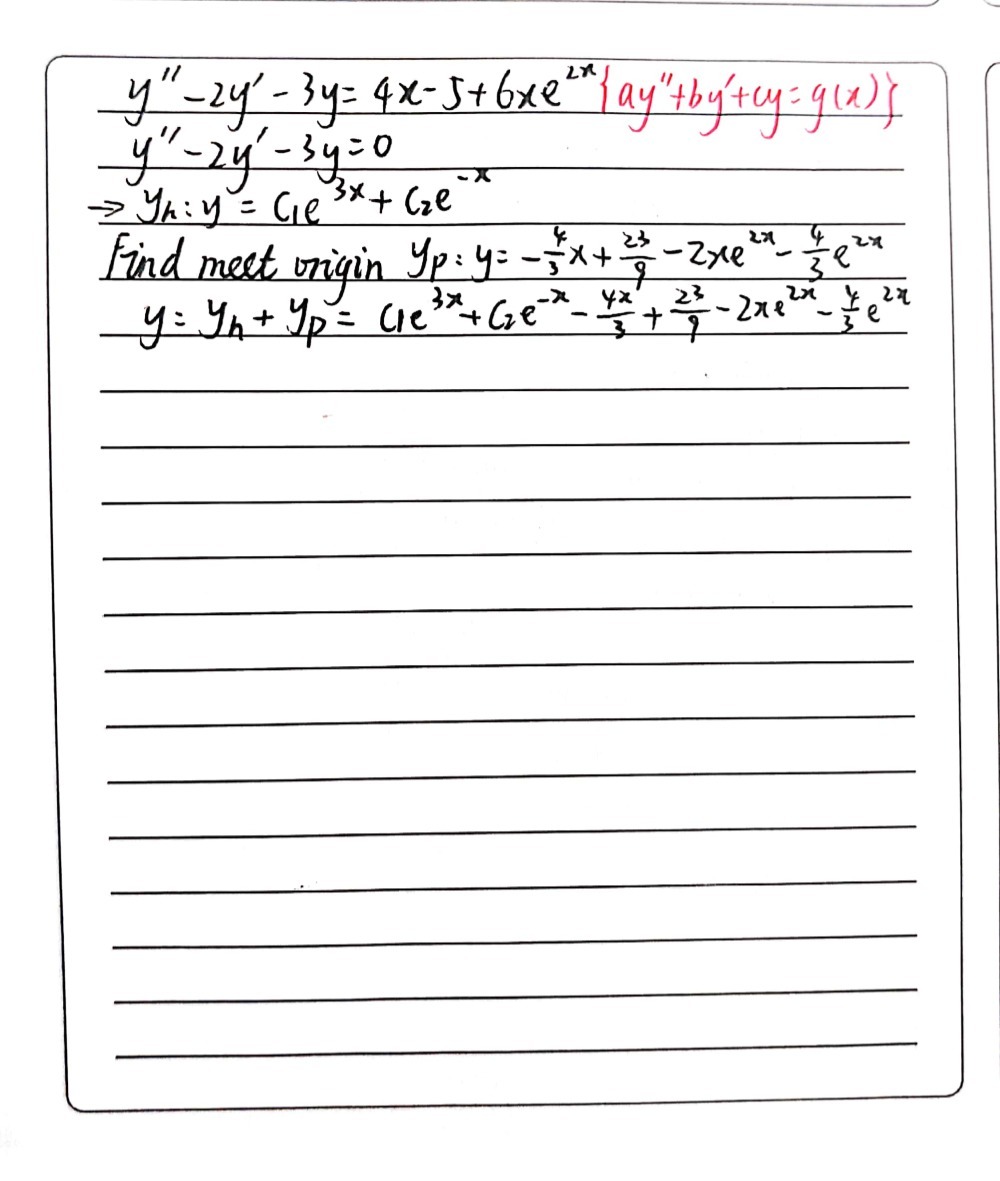 y'' - 2y' - 3y = 4x - 5 + 6xe^{2x} {ay'' + by' + cy = g(x)}
y'' - 2y' - 3y = 0
→ y_h : y = C_1e^{3x} + C_2e^{-x}
Find meet origin y_p : y = -\frac{4}{3}x + \frac{23}{9} - 2xe^{2x} - \frac{4}{3}e^{2x}
y = y_h + y_p = C_1e^{3x} + C_2e^{-x} - \frac{4x}{3} + \frac{23}{9} - 2xe^{2x} - \frac{4}{3}e^{2x}